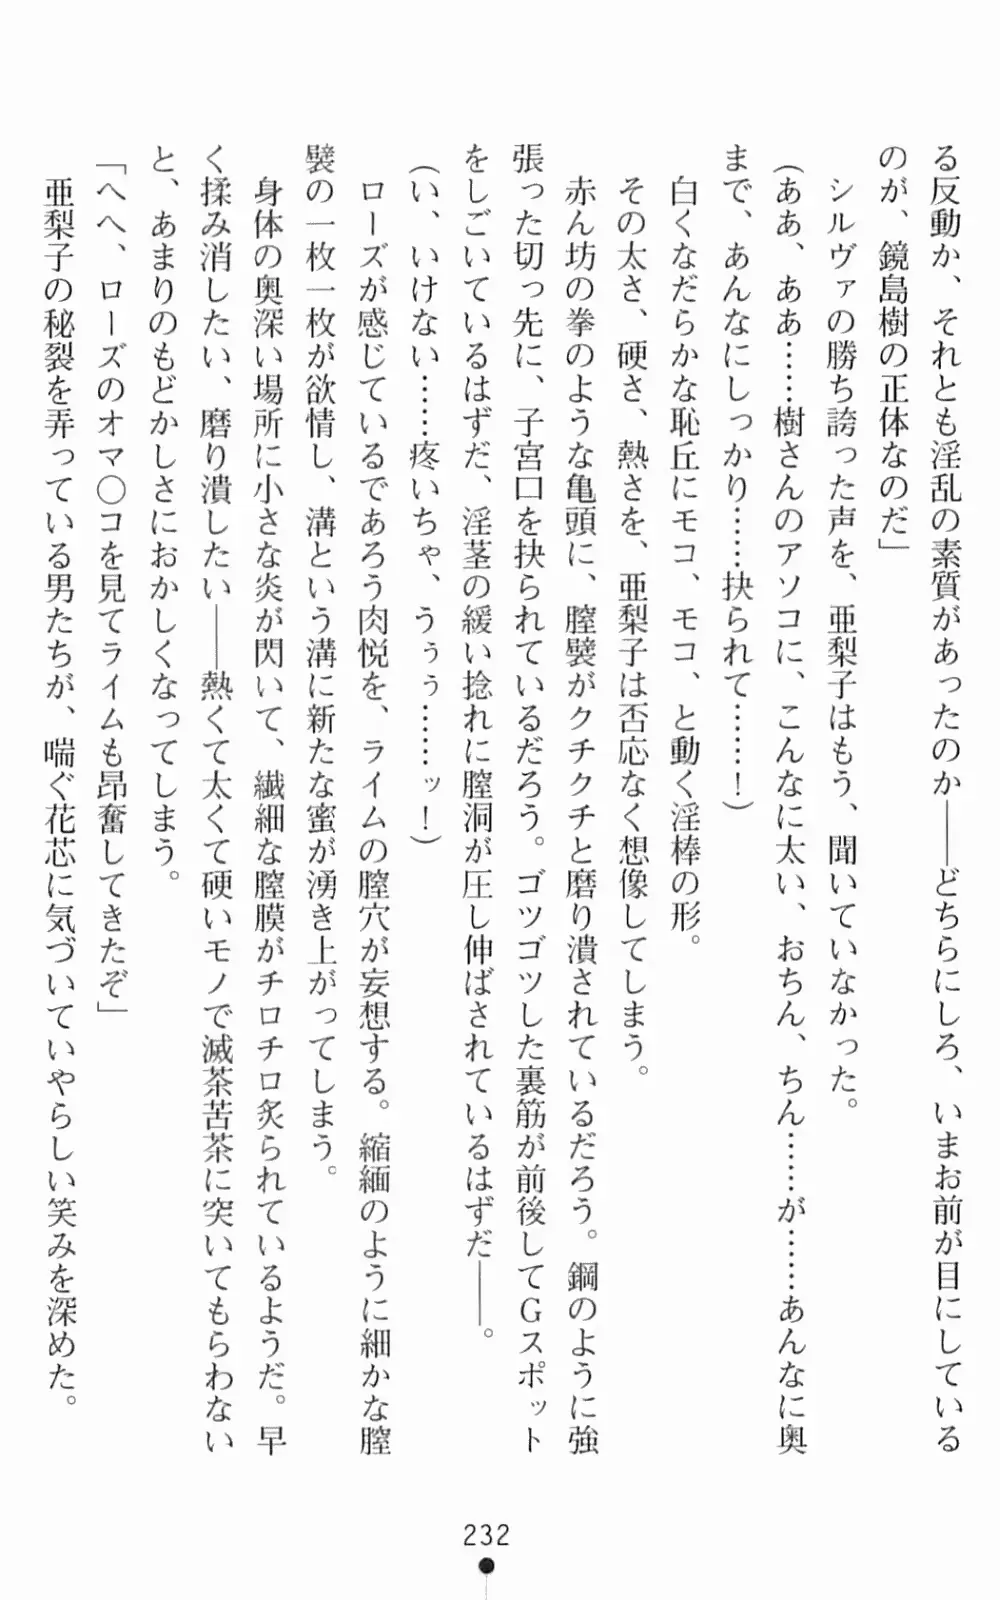 る反動か、それとも淫乱の素質があったのか――どちらにしろ、いまお前が目にしている
のが、鏡島樹の正体なのだ」
シルヴァの勝ち誇った声を、亜梨子はもう、聞いていなかった。
(ああ、ああ……樹さんのアソコに、こんなに太い、おちん、ちん……が……あんなに奥
まで、あんなにしっかり……抉られて……！)
白くなだらかな恥丘にモコ、モコ、と動く淫棒の形。
その太さ、硬さ、熱さを、亜梨子は否応なく想像してしまう。
赤ん坊の拳のような亀頭に、膣襞がクチクチと磨り潰されているだろう。鋼のように強
張った切っ先に、子宮口を抉られているだろう。ゴツゴツした裏筋が前後してGスポット
をしごいているはずだ、淫茎の緩い捻れに膣洞が圧し伸ばされているはずだ――。
(い、いけない……疼いちゃ、うぅぅ……ッ！)
ローズが感じているであろう肉悦を、ライムの膣穴が妄想する。縮緬のように細かな膣
襞の一枚一枚が欲情し、溝という溝に新たな蜜が湧き上がってしまう。
身体の奥深い場所に小さな炎が閃いて、繊細な膣膜がチロチロ炙られているようだ。早
く揉み消したい、磨り潰したい――熱くて太くて硬いモノで滅茶苦茶に突いてもらわない
と、あまりのもどかしさにおかしくなってしまう。
「へへ、ローズのオマ〇コを見てライムも昂奮してきたぞ」
亜梨子の秘裂を弄っている男たちが、喘ぐ花芯に気づいていやらしい笑みを深めた。
232